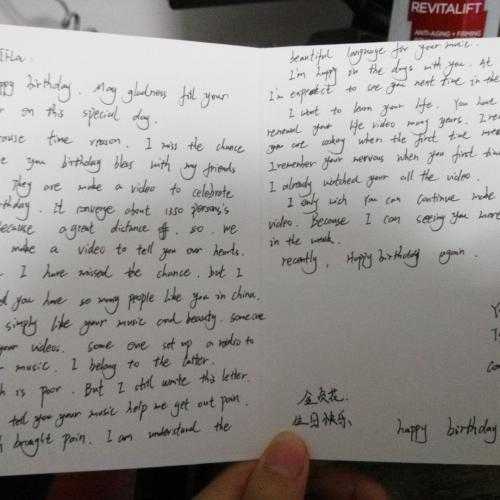 REVITALIFT
ANTI-AGING + FIRMING
birthday. May gladness fill your
on this special day.
time reason. I miss the chance
you birthday bless with my friends
They are make a video to celebrate
It converge about 1350 persons,s
because a great distance so. we
make a video to tell you our hearts.
I have missed the chance. but I
you have so many people like you in china.
simply like your music and beauty. someone
your videos. some one set up a radio to
music. I belong to the latter.
is poor. But I still write this letter.
tell you your music help me get out pain.
brought pain. I am understand the
beautiful language for your music.
I'm happy in the days with you. At
I'm expect to see you next time in the
I want to learn your life. You have
renewal your life video many years. I
you are cooking when the first time
I remember your nervous when you first time
I already watched your all the video.
I only wish you can continue make
video. Because I can seeing you more
in the week.
recently. Happy birthday again.
生日快乐
happy birthday